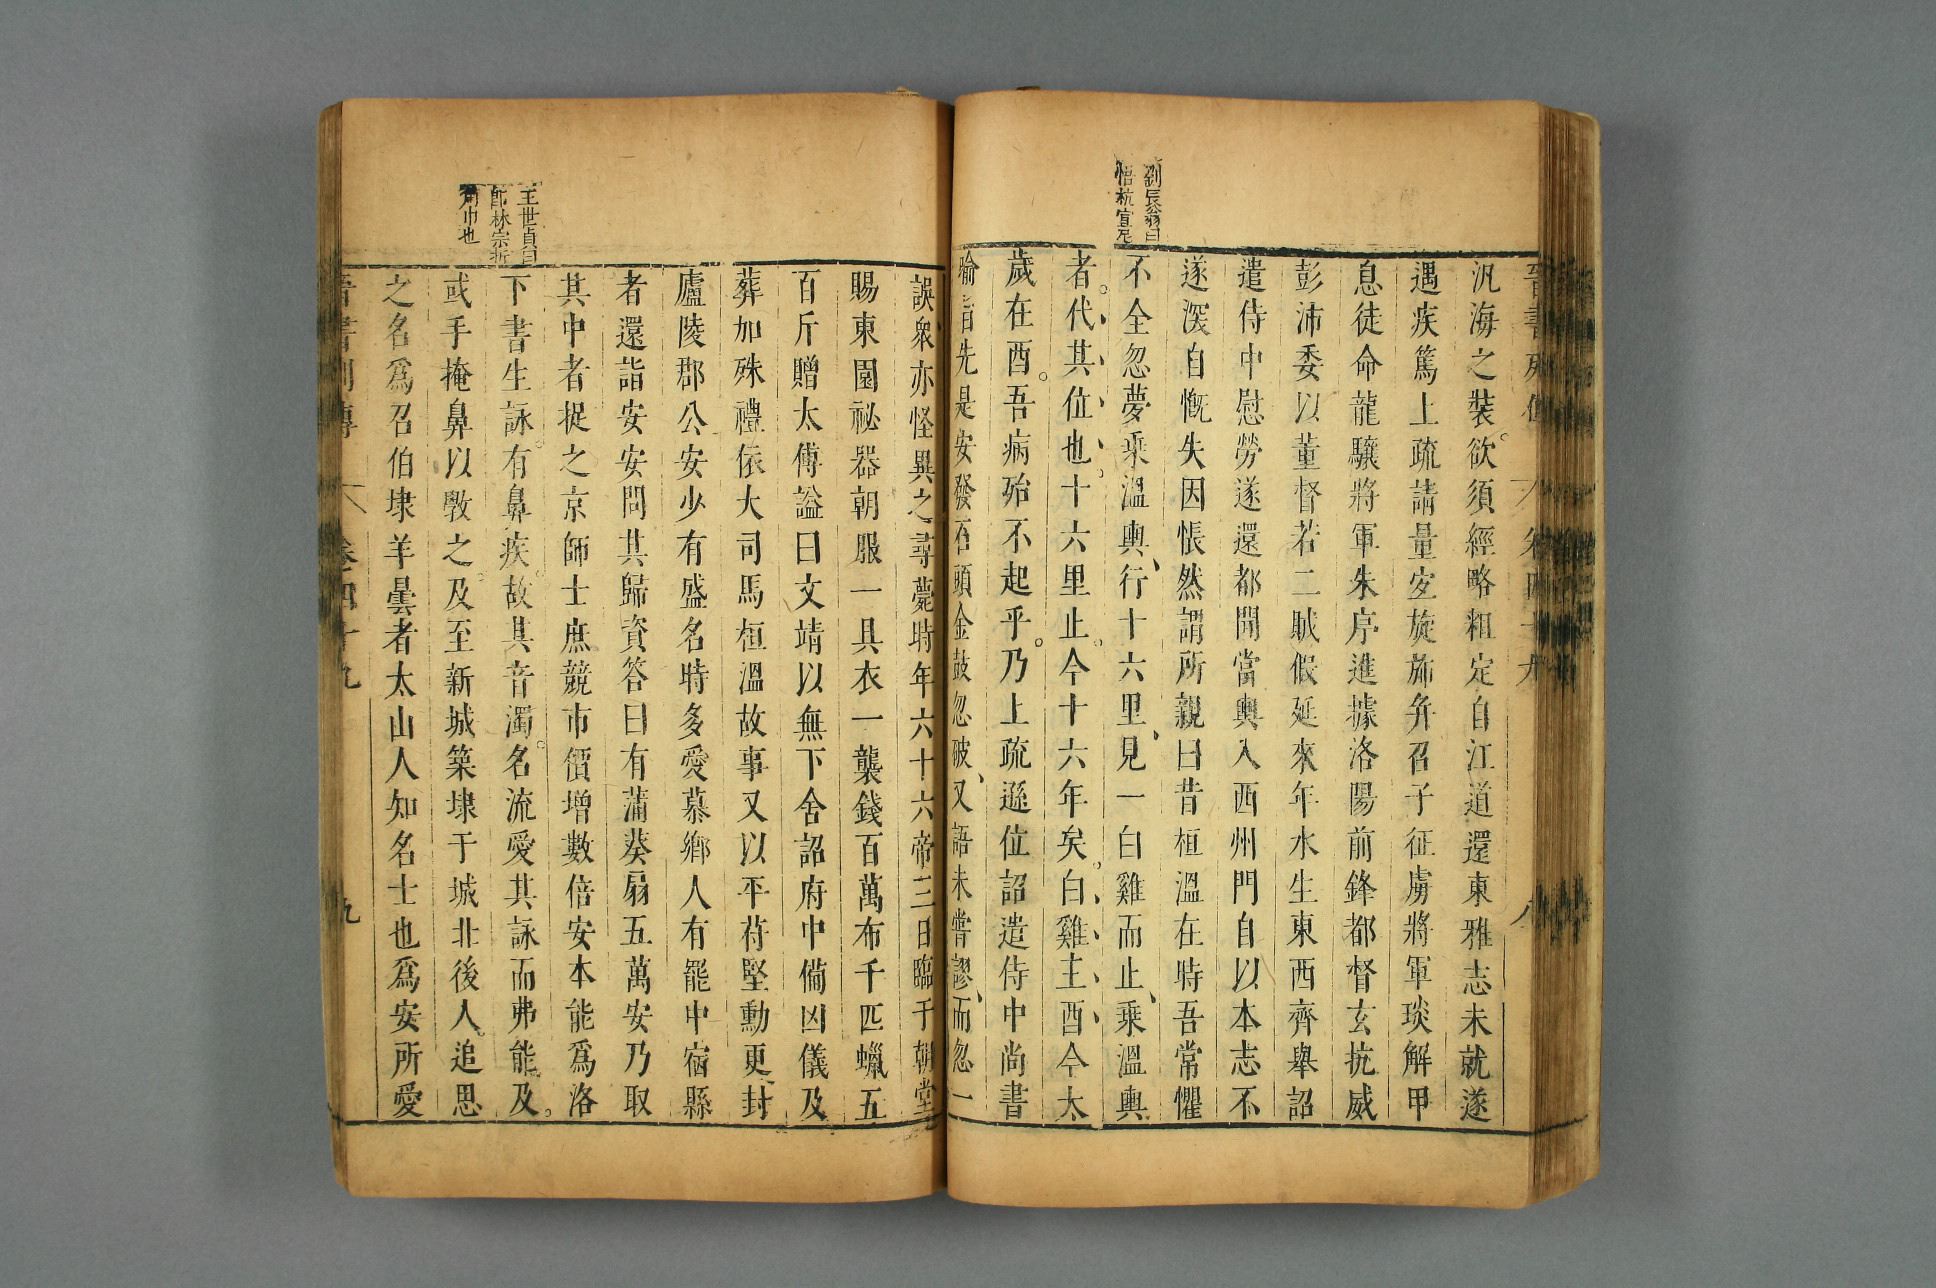 劉辰翁曰
悟杭宣尼
汎海之裝欲須經略粗定自江道還東雅志未就遂
遇疾篤上疏請量宜旋旆并召子征虜將軍琰解甲
息徒命龍驤將軍朱序進據洛陽前鋒都督玄抗威
彭沛委以董督若二賊假延來年水生東西齊舉詔
遣侍中慰勞遂還都聞當輿入西州門自以本志不
遂深自慨失因悵然謂所親曰昔桓溫在時吾常懼
不全忽夢乘溫輿行十六里見一白雞而止乘溫輿
者代其位也十六里止今十六年矣白雞主酉今太
歲在酉吾病殆不起乎乃上疏遜位詔遣侍中尚書
喻旨先是安發石頭金鼓忽破又語未嘗謬而忽一
王世貞曰
即林宗折
角巾也
誤衆亦怪異之尋薨時年六十六帝三日臨于朝堂
賜東園祕器朝服一具衣一襲錢百萬布千匹蠟五
百斤贈太傅謚曰文靖以無下舍詔府中備凶儀及
葬加殊禮依大司馬桓溫故事又以平苻堅勳更封
廬陵郡公安少有盛名時多愛慕鄉人有罷中宿縣
者還詣安安問其歸資答曰有蒲葵扇五萬安乃取
其中者捉之京師士庶競市價增數倍安本能爲洛
下書生詠有鼻疾故其音濁名流愛其詠而弗能及
或手掩鼻以斆之及至新城築埭于城北後人追思
之名爲召伯埭羊曇者太山人知名士也爲安所愛
晉書列傳 卷四十九 九